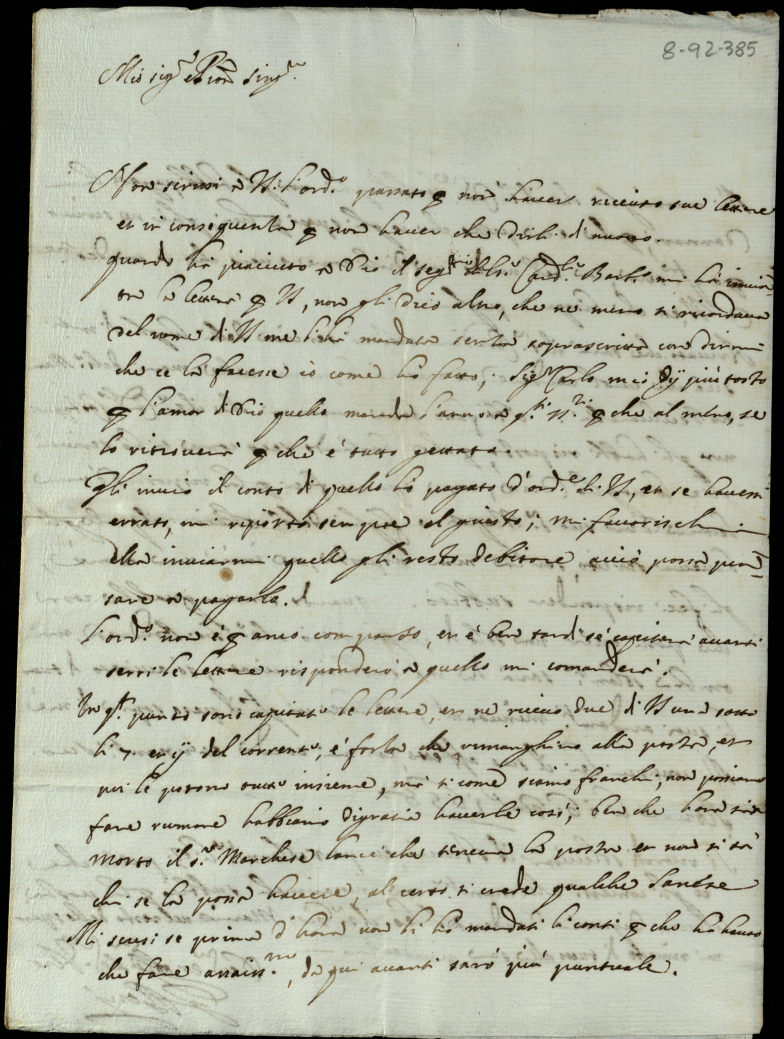 8-92-385
Mio sig.re e Pron sing.re
Non scrissi a VS l'ord.o passato p non haver riceuto sue lettere
et in consequenza p non haver che dirli di nuovo.
quando hà piaciuto a Dio il seg.rio del s.r Card.l Barb.o mi hà invia=
ta la lettera p VS, non gli dico altro, che ne meno si ricordava
del nome di VS me l'hà mandata senza soprascritta con dirmi
che ce la facesse io come hò fatto; Sig.r Carlo mio più tosto
p l'amor di Dio quello manda l'anno a p che al meno, se
lo ritroverà p che è tutto gettato.
Gli invio il conto di quello hò pagato d'ord.e di VS, et se havessi
errato, mi riporto sempre al giusto; mi favorischi
ella inviarmi quello gli resto debitore acciò possa pen=
sare a pagarla.
L'ord.o non è p anco comparso, et è ben tardi se capiterà avanti
serri le lettere risponderò a quello mi comanderà.
In q.to punto sono capitate le lettere, et ne ricevo due di VS una sotto
li 7. et ij del corrente, è forza che rimanghino alla posta, et
poi le portono tutte insieme, mà si come siamo franchi, non possiamo
fare rumore habbiamo di gratia haverle così; ben che hora sia
morto il s.r Marchese che teneva la posta et non si sà
chi se la possa havere, al certo si crede qualche Sanese
Mi scusi se prima d'hora non li hò mandati li conti p che hò hauto
che fare assaiss.mo, da qui avanti sarò più puntuale.